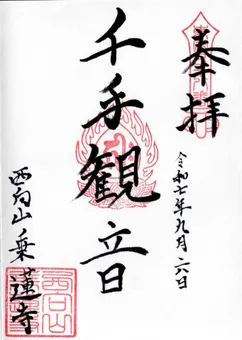 奉拝
令和七年九月二六日
千手観音
西向山乗蓮寺
西向山